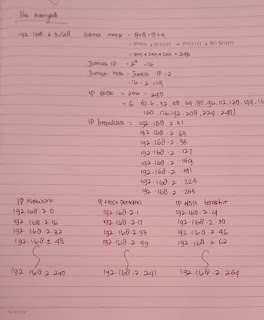 192.168.2.5/28 Subnet mask = 8+8+8+4
= 255.255.255.240
Jumlah IP = 2⁴ = 16
Jumlah Host = Jumlah IP - 2
= 16 - 2 = 14
= 256 - 240
160, 176, 192, 208, 224, 240
IP broadcast = 192.168.2.31
192.168.2.63
192.168.2.95
192.168.2.127
192.168.2.159
192.168.2.191
192.168.2.223
192.168.2.255
IP Network IP Host Pertama IP Host terakhir
192.168.2.0 192.168.2.1 192.168.2.14
192.168.2.16 192.168.2.17 192.168.2.30
192.168.2.32 192.168.2.33 192.168.2.46
192.168.2.48 192.168.2.49 192.168.2.62
192.168.2.240 192.168.2.241 192.168.2.254